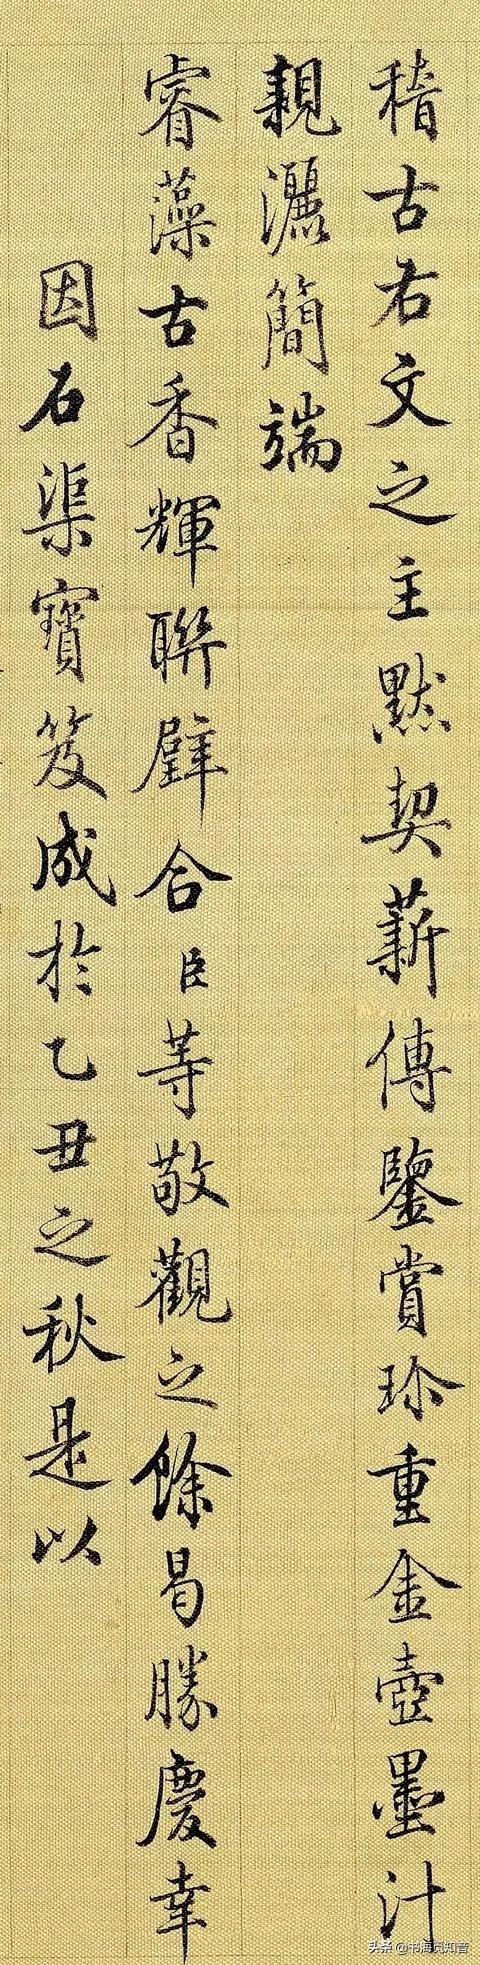 稽古右文之主默契薪傳鑒賞珍重金壺墨汁
親灑簡端
睿藻古香輝聯璧合臣等敬觀之餘曷勝慶幸
因石渠寶笈成於乙丑之秋是以
头条 @书海员知音